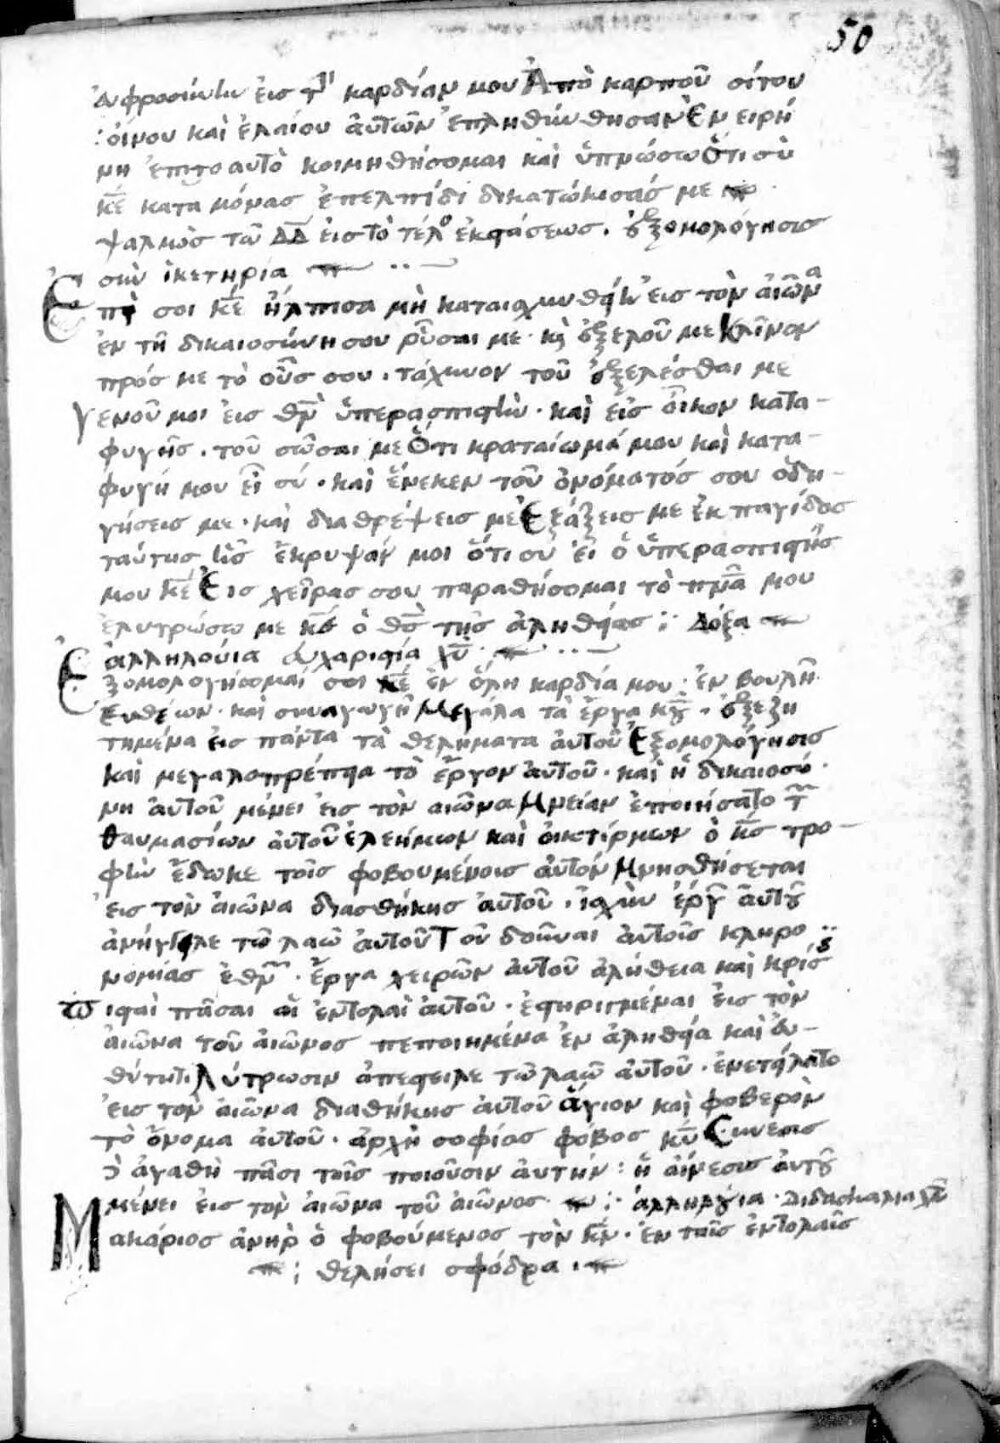 50
ἐυφροσύνην ἐις τὴν καρδίαν μου Ἀπὸ καρποῦ σίτου
: οἴνου καὶ ἐλαίου ἀυτῶν ἐπληθύνθησαν Ἐν εἰρή
νη ἐπιτοαυτὸ κοιμηθήσομαι καὶ ὑπνώσω Ὅτι σὺ
κε κατα μόνας ἐπελπίδι δικατώκισάς με
ψαλμὸς τῶ ΔΑΔ ἐις τὸ τέλος ἐκστάσεως . ἐξομολόγησις
σὺν ἱκετηρία
Ἐπι σοι κε ἤλπισα μὴ καταισχυνθείην ἐις τὸν ἀιῶνα
ἐν τῆ δικαιοσύνη σου ῥῦσαι με · κὶ ἐξελοῦ με Κλῖνον
πρός με τὸ οὖς σου . τάχυνον τοῦ ἐξελέσθαι με
γενοῦ μοι ἐις θν ὑπερασπιστὴν · καὶ ἐις ὅικον κατα-
φυγῆς . τοῦ σῶσαι με Ὅτι κραταίωμά μου καὶ κατα-
φυγή μου εἶ σύ · καὶ ἕνεκεν τοῦ ὀνόματός σου ὁδη-
γήσεις με · καὶ διαθρέψεις με Ἐξάξεις με ἐκ παγίδος
ταύτης ἧς ἔκρυψάν μοι ὅτι συ ἐἶ ὁ ὑπερασπιστής
μου κε Ἐις χεῖρας σου παραθήσομαι τὸ πνα μου
ἐλυτρώσω με κς ὁ θς τῆς ἀληθείας : Δόξα
ἀλληλούια ἐυχαριστία χυ
Ἐξομολογήσομαί σοι κε ἐν ὅλη καρδία μου · ἐν βουλῆ
Ευθέιων · καὶ συναγωγῆ Μεγάλα τὰ ἔργα κυ . ἐξεζη
τημένα ἐις πάντα τὰ θελήματα ἀυτοῦ Ἐξομολόγησις
καὶ μεγαλοπρέπεια τὸ ἔργον ἀυτοῦ · καὶ ἡ δικαιοσύ
νη ἀυτοῦ μένει ἐις τὸν αιῶνα Μνείαν ἐποιήσατο τῶν
θαυμασίων ἀυτοῦ ἐλεήμων καὶ ὀικτίρμων ὁ κς τρο-
φὴν ἔδωκε τοῖς φοβουμένοις ἀυτόν Μνησθήσεται
ἐις τὸν ἀιῶνα διασθήκης ἀυτοῦ . ἰσχὺν ἔργων ἀυτοῦ
ἀνήγγειλε τῶ λαῶ ἀυτοῦ Τοῦ δοῦναι ἀυτοῖς κληρο
νομίας ἐθνῶν · ἔργα χειρῶν ἀυτοῦ ἀλήθεια καὶ κρίσις
Πισταὶ πᾶσαι ἁι ἐντολαὶ ἀυτοῦ · ἐστηριγμέναι ἐις τὸν
ἀιῶνα τοῦ ἀιῶνος πεποιημένα ἐν ἀληθεία καὶ ἐυ-
θύτητι Λύτρωσιν ἀπεστειλε τῶ λαῶ ἀυτοῦ · ἐνετείλατο
ἐις τὸν ἀιῶνα διαθήκης ἀυτοῦ ἅγιον καὶ φοβερὸν
τὸ ὄνομα ἀυτοῦ · ἀρχὴ σοφίας φόβος κυ Συνεσις
δὲ ἀγαθὴ πᾶσι τοῖς ποιοῦσιν ἀυτήν : ἡ ἀίνεσις ἀυτοῦ
μένει ἐις τὸν ἀιῶνα τοῦ ἀιῶνος : ἀλληλούια · Διδασκαλία χυ
Μακάριος ἀνὴρ ὁ φοβούμενος τὸν κν · ἐν ταῖς ἐντολαῖς
: θελήσει σφόδρα .